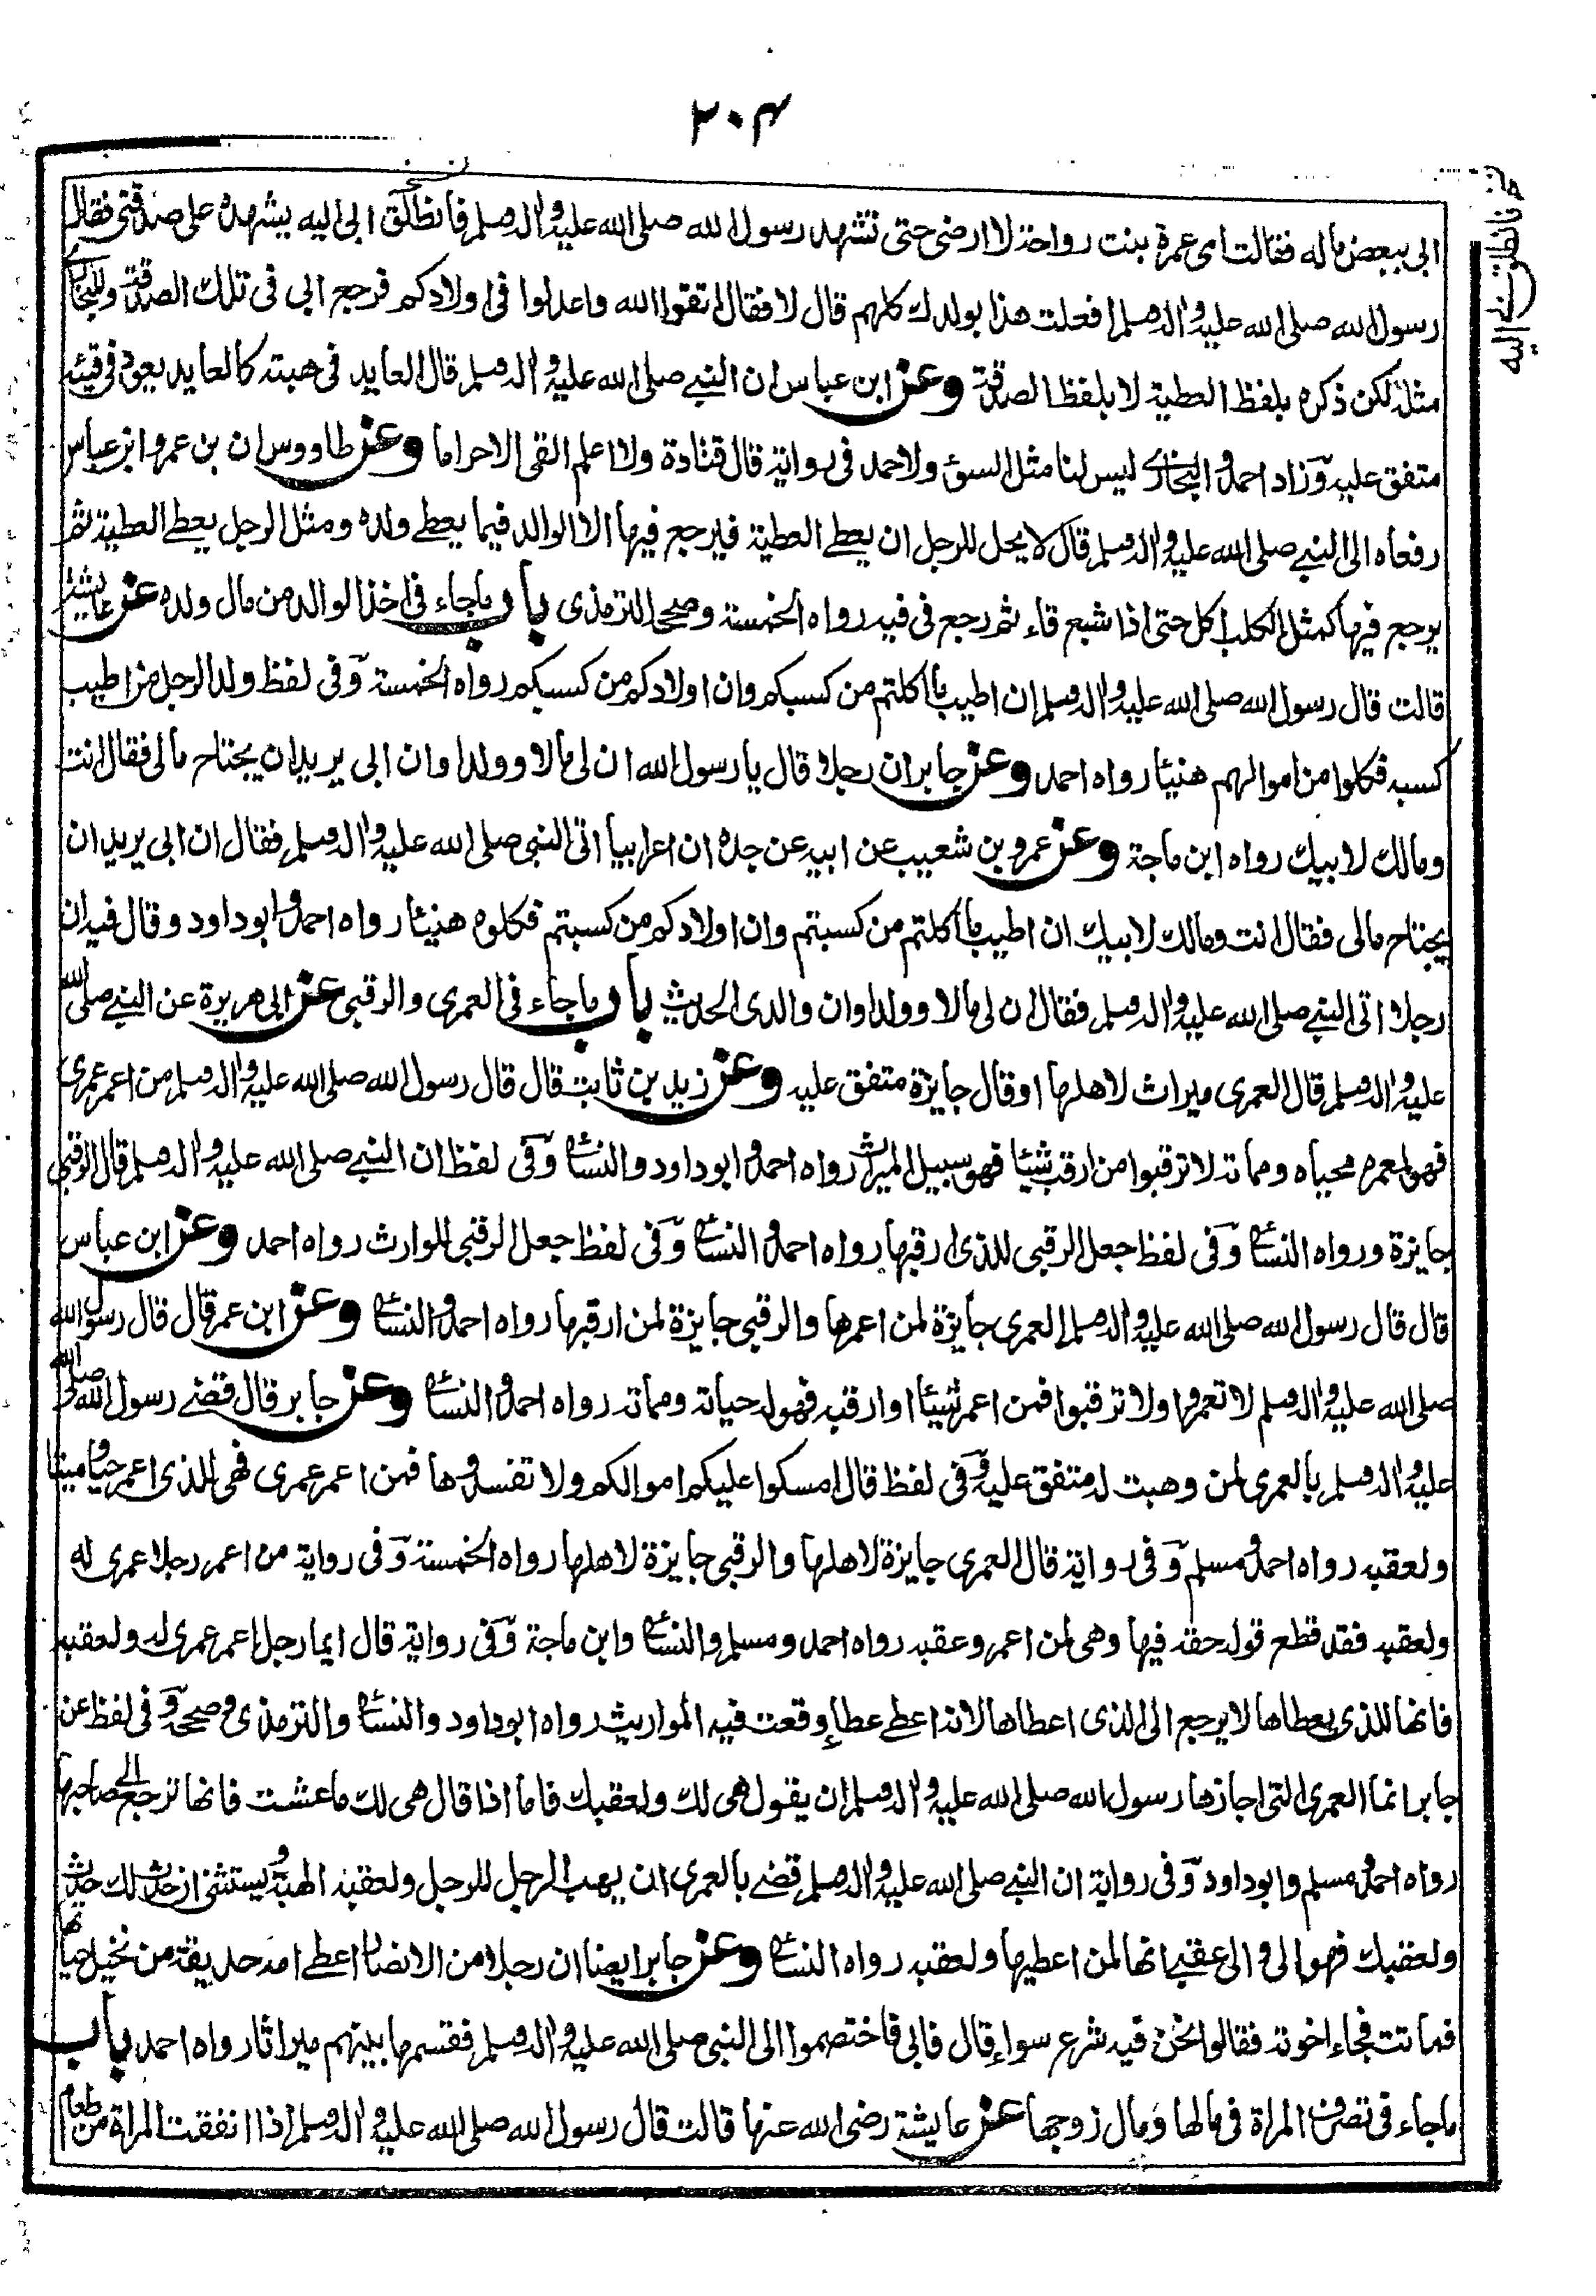 ٢٠٤
ابى ببعض ماله فقالت امى عمرة بنت رواحة لا ارضى حتى تشهد رسول الله صلى الله عليه واله وسلم فانطلق ابى اليه يشهده على صدقتى فقال
رسول الله صلى الله عليه واله وسلم افعلت هذا بولدك كلهم قال لا فقال اتقوا الله واعدلوا فى اولادكم فرجع ابى فى تلك الصدقة وللبخارى
مثله لكن ذكره بلفظ العطية لا بلفظ الصدقة وعن ابن عباس ان النبى صلى الله عليه واله وسلم قال العايد فى هبته كالعايد يعود فى قيئه
متفق عليه وزاد احمد والبخارى ليس لنا مثل السوء ولاحمد فى رواية قال قتادة ولا اعلم القى الا حراما وعن طاووس ان بن عمر وابن عباس
رفعاه الى النبى صلى الله عليه واله وسلم قال لا يحل للرجل ان يعطى العطية فيرجع فيها الا الوالد فيما يعطى ولده ومثل الرجل يعطى العطية ثم
يرجع فيها كمثل الكلب اكل حتى اذا شبع قاء ثم رجع فى قيه رواه الخمسة وصححه الترمذى باب ماجاء فى اخذ الوالد من مال ولده عن عايشة
قالت قال رسول الله صلى الله عليه واله وسلم ان اطيب ما اكلتم من كسبكم وان اولادكم من كسبكم رواه الخمسة وفى لفظ ولد الرجل من اطيب
كسبه فكلوا من اموالهم هنيئا رواه احمد وعن جابر ان رجلا قال يا رسول الله ان لى مالا وولدا وان ابى يريد ان يجتاح مالى فقال انت
ومالك لابيك رواه ابن ماجة وعن عمرو بن شعيب عن ابيه عن جده ان اعرابيا اتى النبى صلى الله عليه واله وسلم فقال ان ابى يريد ان
يجتاح مالى فقال انت ومالك لابيك ان اطيب ما اكلتم من كسبتم وان اولادكم من كسبتم فكلوه هنيئا رواه احمد وابو داود وقال فيه ان
رجلا اتى النبى صلى الله عليه واله وسلم فقال ان لى مالا وولدا وان والدى الحديث باب ماجاء فى العمرى والرقبى عن ابى هريرة عن النبى صلى الله
عليه واله وسلم قال العمرى ميراث لاهلها او قال جايزة متفق عليه وعن زيد بن ثابت قال قال رسول الله صلى الله عليه واله وسلم من اعمر عمرى
فهو لمعمره محياه ومماته لا ترقبوا من ارقب شيئا فهو سبيل الميراث رواه احمد وابو داود والنسائى وفى لفظ ان النبى صلى الله عليه واله وسلم قال الرقبى
جايزة ورواه النسائى وفى لفظ جعل الرقبى للذى ارقبها رواه احمد والنسائى وفى لفظ جعل الرقبى للوارث رواه احمد وعن ابن عباس
قال قال رسول الله صلى الله عليه واله وسلم العمرى جايزة لمن اعمرها والرقبى جايزة لمن ارقبها رواه احمد والنسائى وعن ابن عمر قال قال رسول الله
صلى الله عليه واله وسلم لا تعمروا ولا ترقبوا فمن اعمر شيئا او ارقبه فهو له حياته ومماته رواه احمد والنسائى وعن جابر قال قضى رسول الله صلى الله
عليه واله وسلم بالعمرى لمن وهبت له متفق عليه وفى لفظ قال امسكوا عليكم اموالكم ولا تفسدوها فمن اعمر عمرى فهى للذى اعمر حيا وميتا
ولعقبه رواه احمد ومسلم وفى رواية قال العمرى جايزة لاهلها والرقبى جايزة لاهلها رواه الخمسة وفى رواية من اعمر رجلا عمرى له
ولعقبه فقد قطع قوله حقه فيها وهى لمن اعمر وعقبه رواه احمد ومسلم والنسائى وابن ماجة وفى رواية قال ايما رجل اعمر عمرى له ولعقبه
فانها للذى يعطاها لا يرجع الى الذى اعطاها لانه اعطى عطاء وقعت فيه المواريث رواه ابو داود والنسائى والترمذى وصححه وفى لفظ عن
جابر انما العمرى التى اجازها رسول الله صلى الله عليه واله وسلم ان يقول هى لك ولعقبك فاما اذا قال هى لك ما عشت فانها ترجع الى صاحبها
رواه احمد ومسلم وابو داود وفى رواية ان النبى صلى الله عليه واله وسلم قضى بالعمرى ان يهب الرجل للرجل ولعقبه الهبة ويستثنى ان حدث بك حدث
ولعقبك فهو الى والى عقبى انها لمن اعطيها ولعقبه رواه النسائى وعن جابر ايضا ان رجلا من الانصار اعطى امه حديقة من نخيل حياتها
فماتت فجاء اخوته فقالوا نحن فيه شرع سواء قال فابى فاختصموا الى النبى صلى الله عليه واله وسلم فقسمها بينهم ميراثا رواه احمد باب
ماجاء فى تصرف المراة فى مالها ومال زوجها عن عايشة رضى الله عنها قالت قال رسول الله صلى الله عليه واله وسلم اذا انفقت المراة من طعام
فانطلق بى اليه